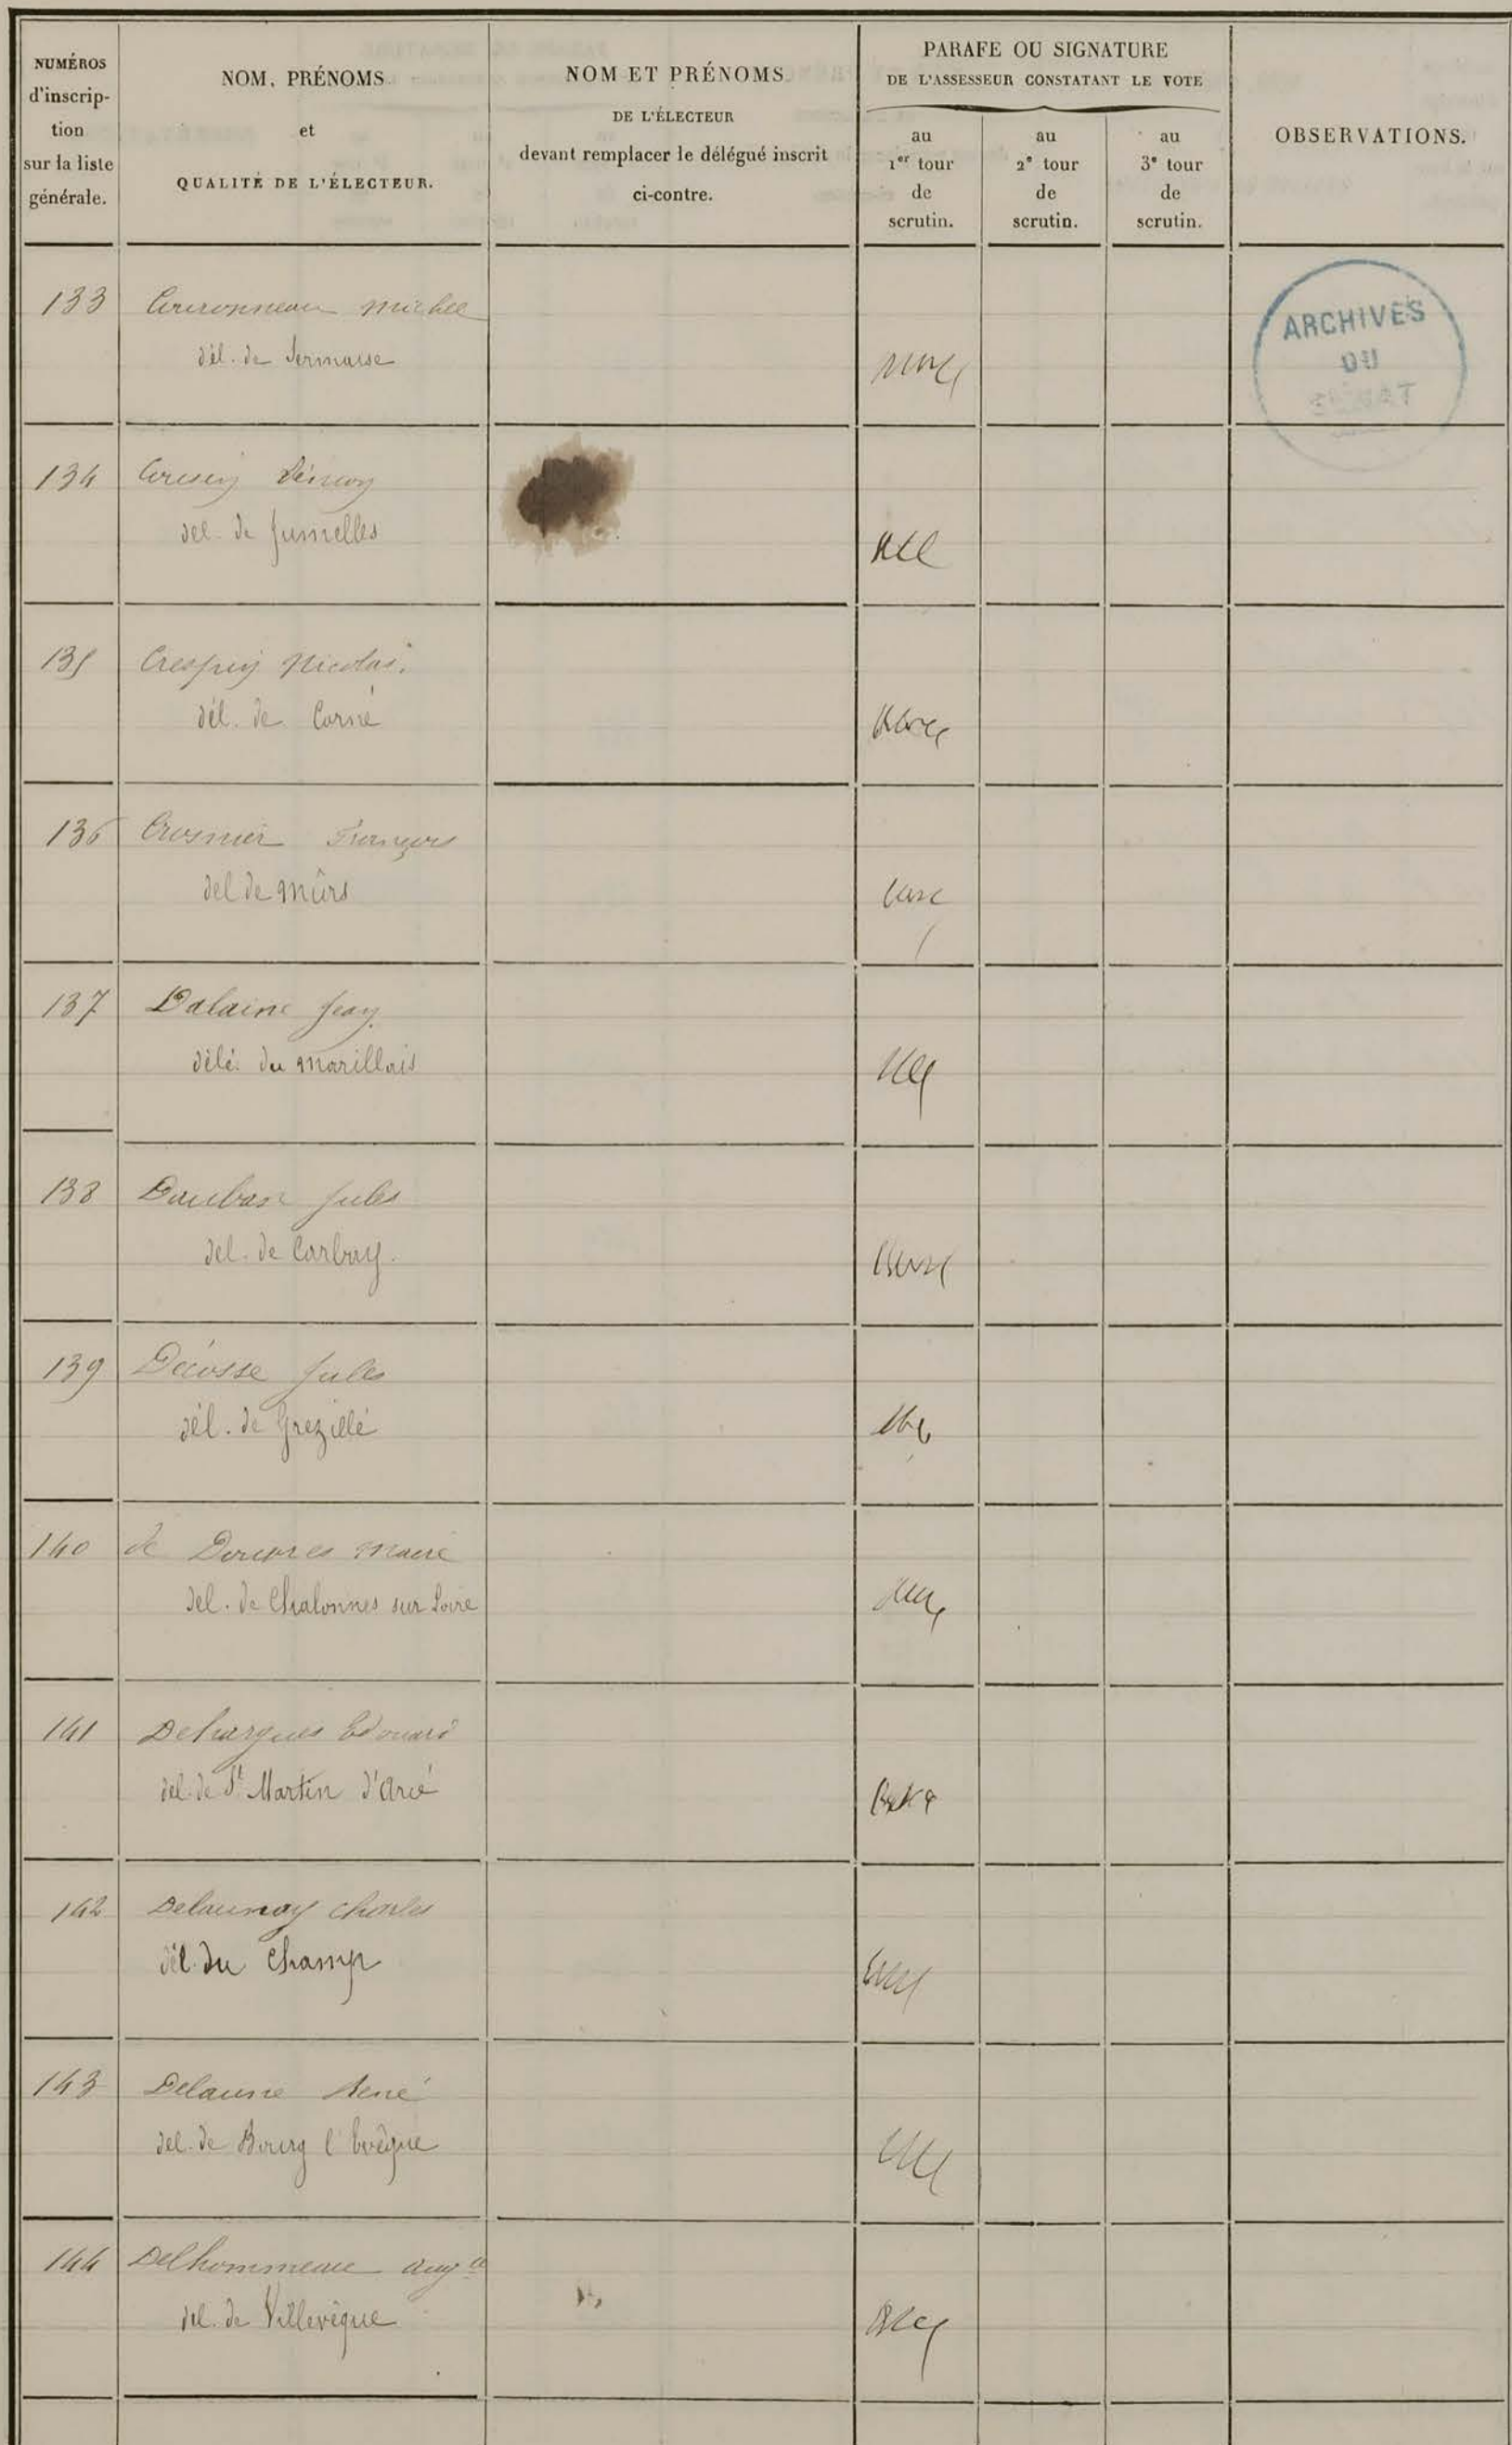 NUMÉROS
d'inscrip-
tion
sur la liste
générale.
NOM, PRÉNOMS
et
QUALITÉ DE L'ÉLECTEUR.
NOM ET PRÉNOMS
DE L'ÉLECTEUR
devant remplacer le délégué inscrit
ci-contre.
PARAFE OU SIGNATURE
DE L'ASSESSEUR CONSTATANT LE VOTE
au
1er tour
de
scrutin.
au
2e tour
de
scrutin.
au
3e tour
de
scrutin.
OBSERVATIONS.
ARCHIVES
DU
133 Couronneau Michel
dél. de Sermaise
134
del. de Jumelles
135 Nicolas
dél. de Corné
136 Crosnier François
del de Mûrs
137 Dalaine Jean
délé. du Marillais
138 Dauban Jules
del. de Carbay.
139 Décosse Jules
dél. de Grezillé
140 de Maire
del. de Chalonnes sur Loire
141 Dehargues Edouard
del. de St Martin d'Arcé
142 Delaunay Charles
dél. du Champ
143 Delaune René
del. de Bourg l'Evêque
144 Delhommeau Augte
del. de Villevêque